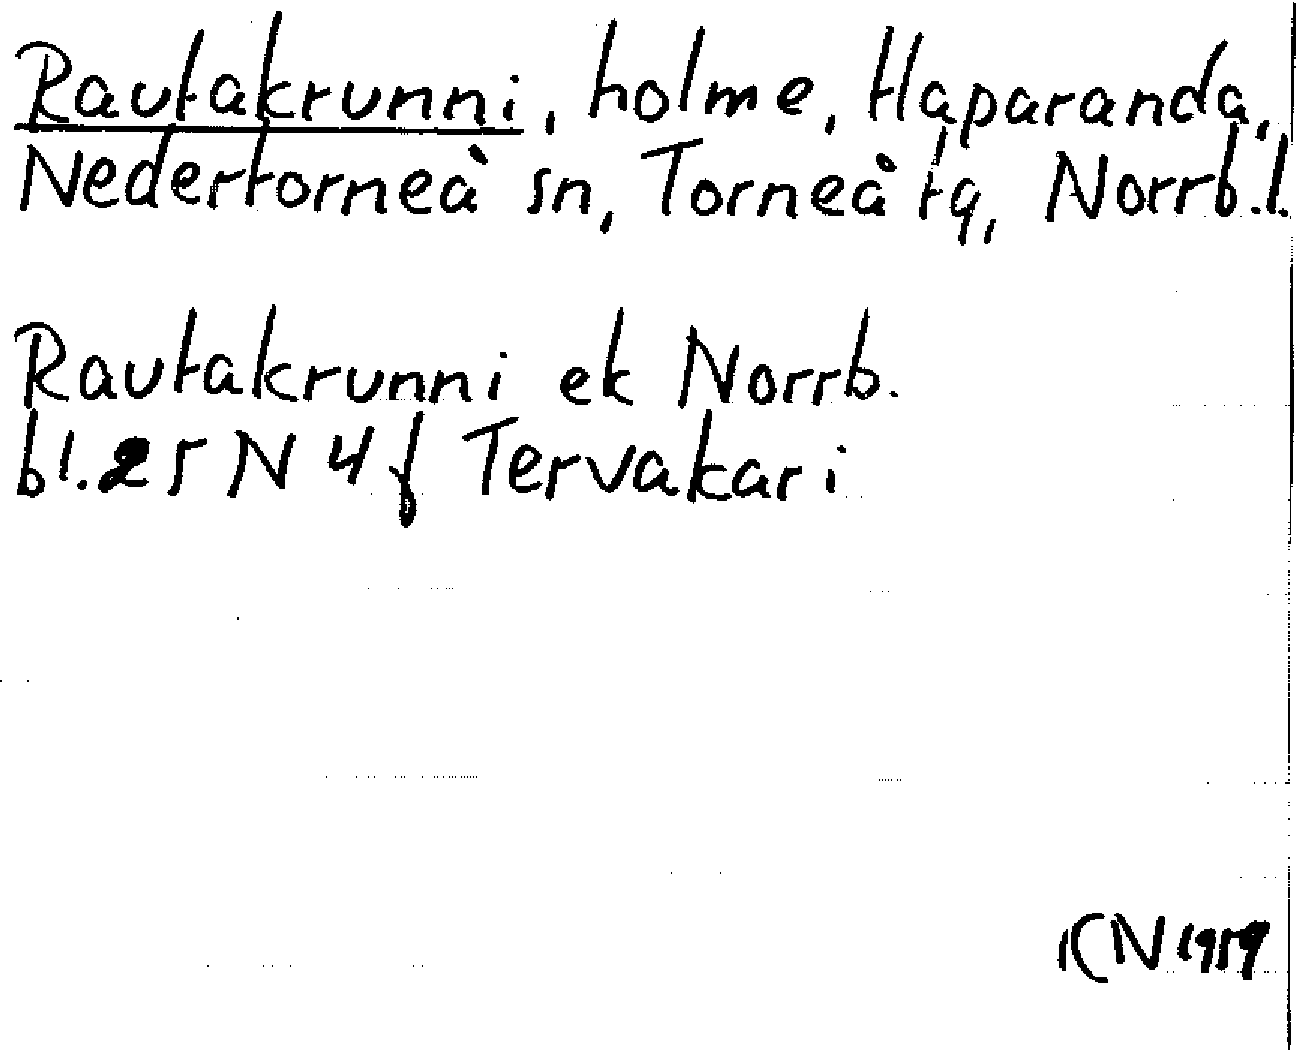 Rautakrunni, holme, Haparanda,
Nedertorneå sn, Torneå tg, Norrb.l.
Rautakrunni ek Norrb.
bl. 25 N 4 f Tervakari
KN 1959